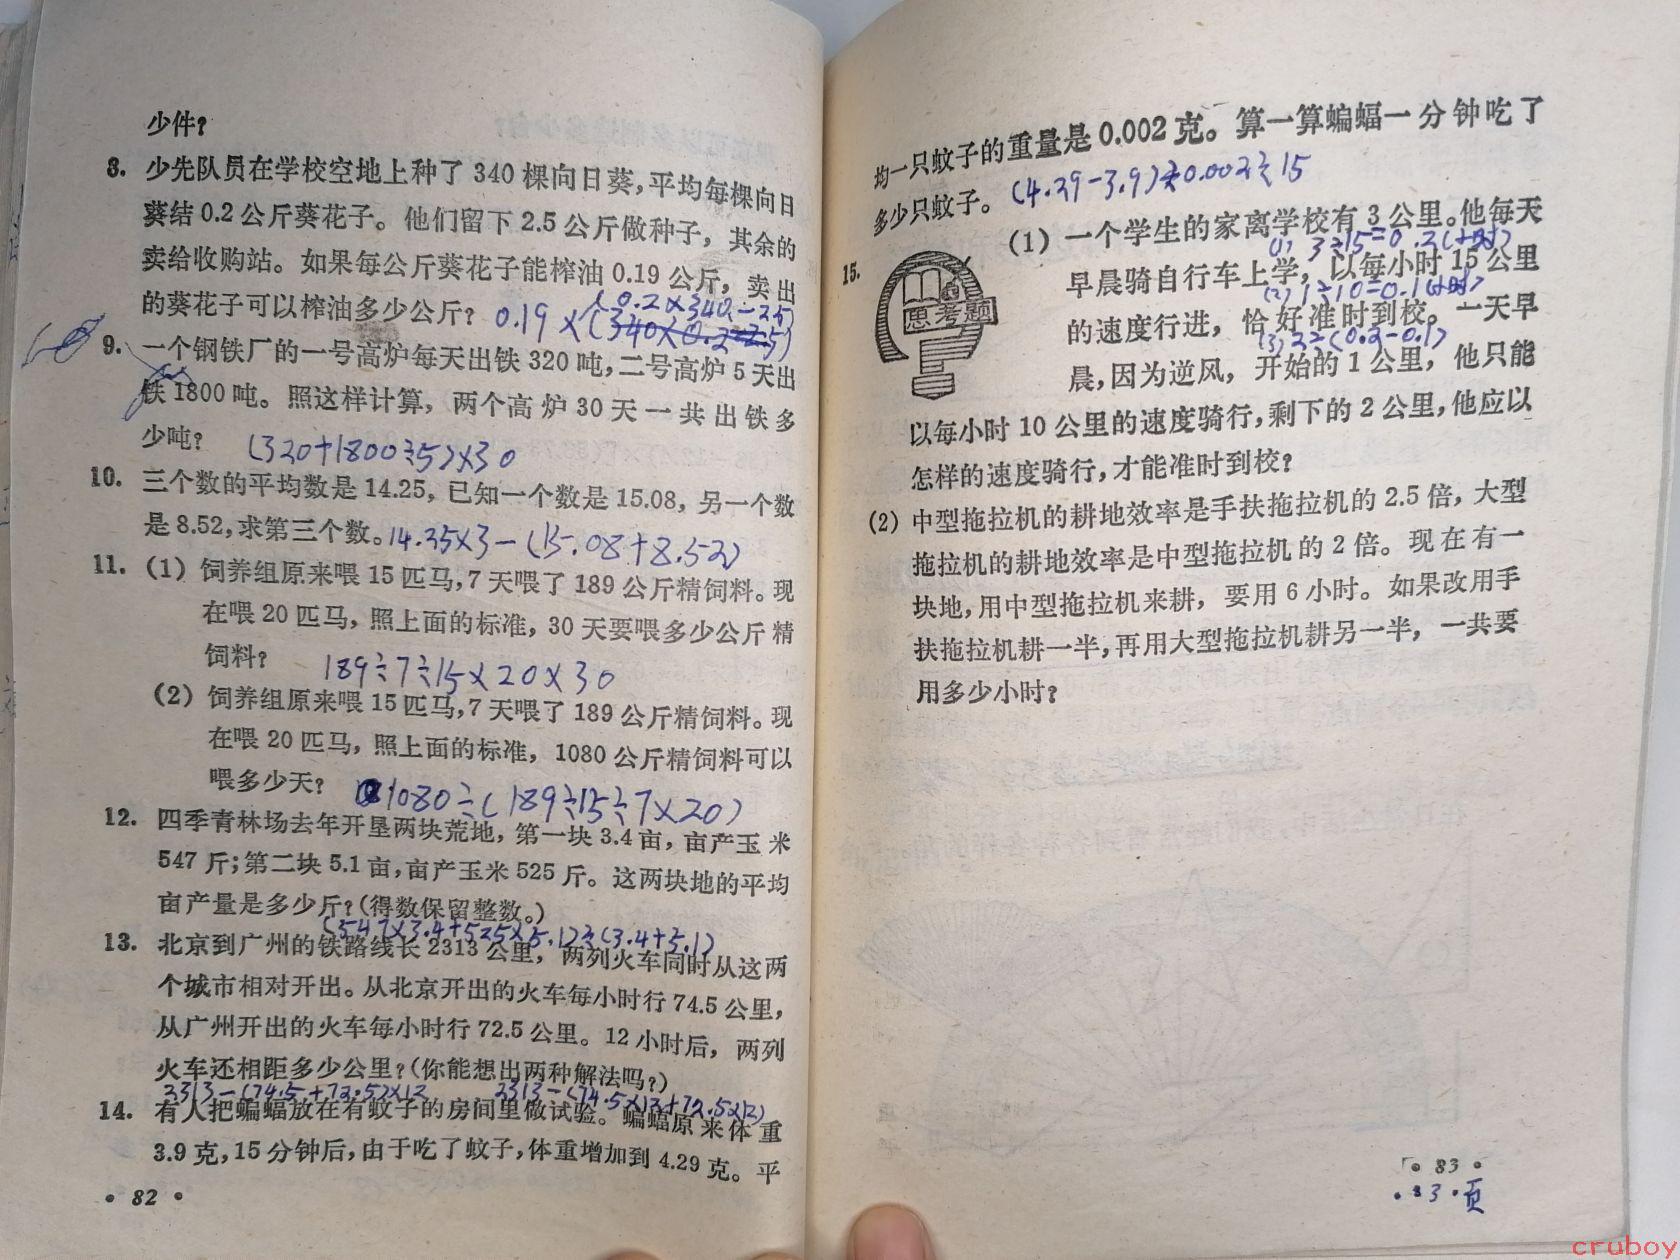 少件?
8. 少先队员在学校空地上种了 340 棵向日葵,平均每棵向日
葵结 0.2 公斤葵花子。他们留下 2.5 公斤做种子,其余的
卖给收购站。如果每公斤葵花子能榨油 0.19 公斤,卖出
的葵花子可以榨油多少公斤?
(0.2×340-2.5)
0.19×(340×0.2-2.5)
9. 一个钢铁厂的一号高炉每天出铁 320 吨,二号高炉 5 天出
铁 1800 吨。照这样计算,两个高炉 30 天一共出铁多
少吨? (320+1800÷5)×30
10. 三个数的平均数是 14.25,已知一个数是 15.08,另一个数
是 8.52,求第三个数。14.25×3-(15.08+8.52)
11. (1) 饲养组原来喂 15 匹马,7 天喂了 189 公斤精饲料。现
在喂 20 匹马,照上面的标准,30 天要喂多少公斤精
饲料? 189÷7÷15×20×30
(2) 饲养组原来喂 15 匹马,7 天喂了 189 公斤精饲料。现
在喂 20 匹马,照上面的标准,1080 公斤精饲料可以
喂多少天? 1080÷(189÷15÷7×20)
12. 四季青林场去年开垦两块荒地,第一块 3.4 亩,亩产玉米
547 斤;第二块 5.1 亩,亩产玉米 525 斤。这两块地的平均
亩产量是多少斤?(得数保留整数。)
(547×3.4+525×5.1)÷(3.4+5.1)
13. 北京到广州的铁路线长 2313 公里,两列火车同时从这两
个城市相对开出。从北京开出的火车每小时行 74.5 公里,
从广州开出的火车每小时行 72.5 公里。12 小时后,两列
火车还相距多少公里?(你能想出两种解法吗?)
2313-(74.5+72.5)×12 2313-(74.5×12+72.5×12)
14. 有人把蝙蝠放在有蚊子的房间里做试验。蝙蝠原来体重
3.9 克,15 分钟后,由于吃了蚊子,体重增加到 4.29 克。平
• 82 •
均一只蚊子的重量是 0.002 克。算一算蝙蝠一分钟吃了
多少只蚊子。(4.29-3.9)÷0.002÷15
15. 思考题
(1) 一个学生的家离学校有 3 公里。他每天
(1) 3÷15=0.2(小时)
早晨骑自行车上学,以每小时 15 公里
(2) 1÷10=0.1(小时)
的速度行进,恰好准时到校。一天早
(3) 2÷(0.2-0.1)
晨,因为逆风,开始的 1 公里,他只能
以每小时 10 公里的速度骑行,剩下的 2 公里,他应以
怎样的速度骑行,才能准时到校?
(2) 中型拖拉机的耕地效率是手扶拖拉机的 2.5 倍,大型
拖拉机的耕地效率是中型拖拉机的 2 倍。现在有一
块地,用中型拖拉机来耕,要用 6 小时。如果改用手
扶拖拉机耕一半,再用大型拖拉机耕另一半,一共要
用多少小时?
• 83 •
• 83 • 页
cruboy